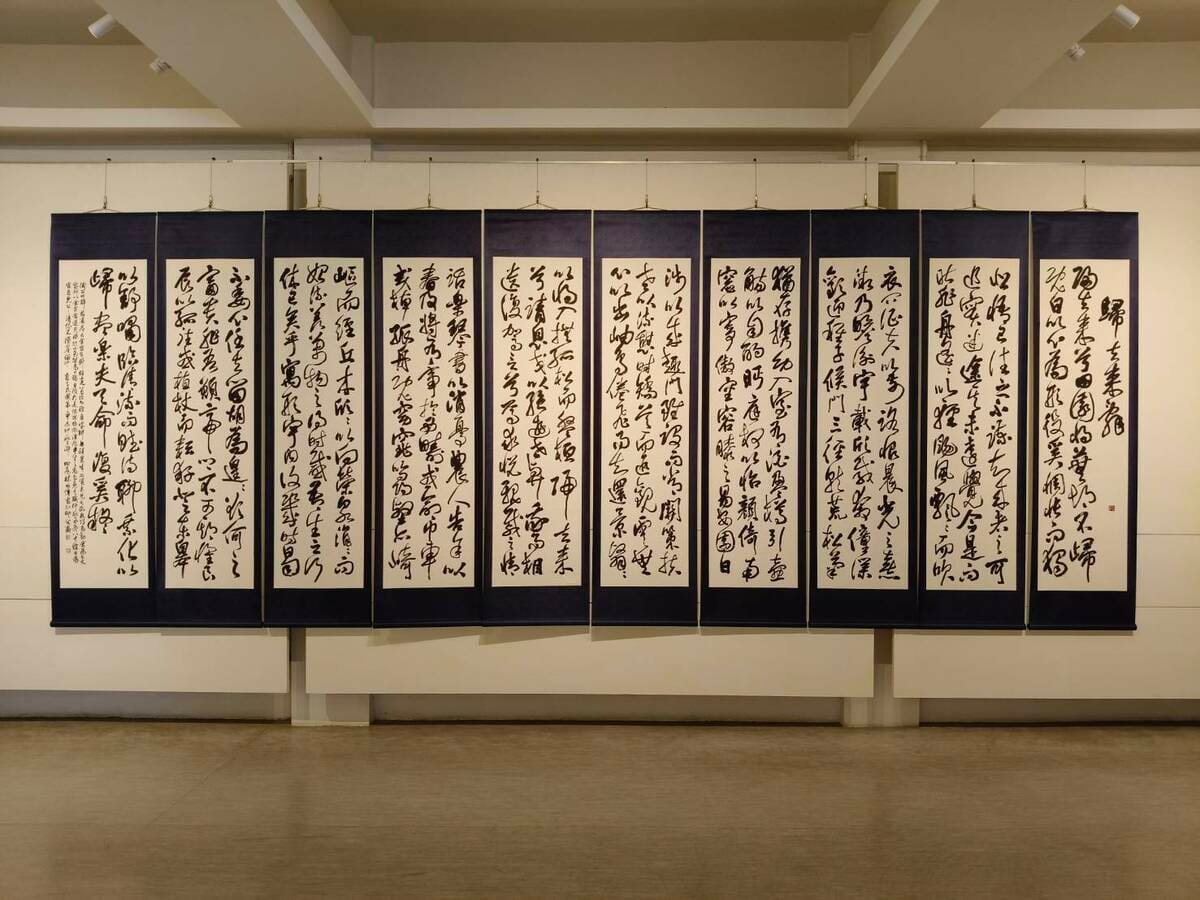 歸去來辭
歸去來兮田園將蕪胡不歸
既自以心為形役奚惆悵而獨
悲悟已往之不諫知來者之可
追實迷途其未遠覺今是而
昨非舟遙遙以輕颺風飄飄而吹
衣問征夫以前路恨晨光之熹
微乃瞻衡宇載欣載奔僮僕
歡迎稚子候門三徑就荒松菊
猶存攜幼入室有酒盈樽引壺
觴以自酌眄庭柯以怡顏倚南
窗以寄傲審容膝之易安園日
涉以成趣門雖設而常關策扶
老以流憩時矯首而遐觀雲無
心以出岫鳥倦飛而知還景翳翳
以將入撫孤松而盤桓歸去來
兮請息交以絕遊世與我而相
遺復駕言兮焉求悅親戚之情
話樂琴書以消憂農人告余以
春及將有事於西疇或命巾車
或棹孤舟既窈窕以尋壑亦崎
嶇而經丘木欣欣以向榮泉涓涓而
始流善萬物之得時感吾生之行
休已矣乎寓形宇內復幾時曷
不委心任去留胡為遑遑欲何之
富貴非吾願帝鄉不可期懷良
辰以孤往或植杖而耘耔登東皋
以舒嘯臨清流而賦詩聊乘化以
歸盡樂夫天命復奚疑